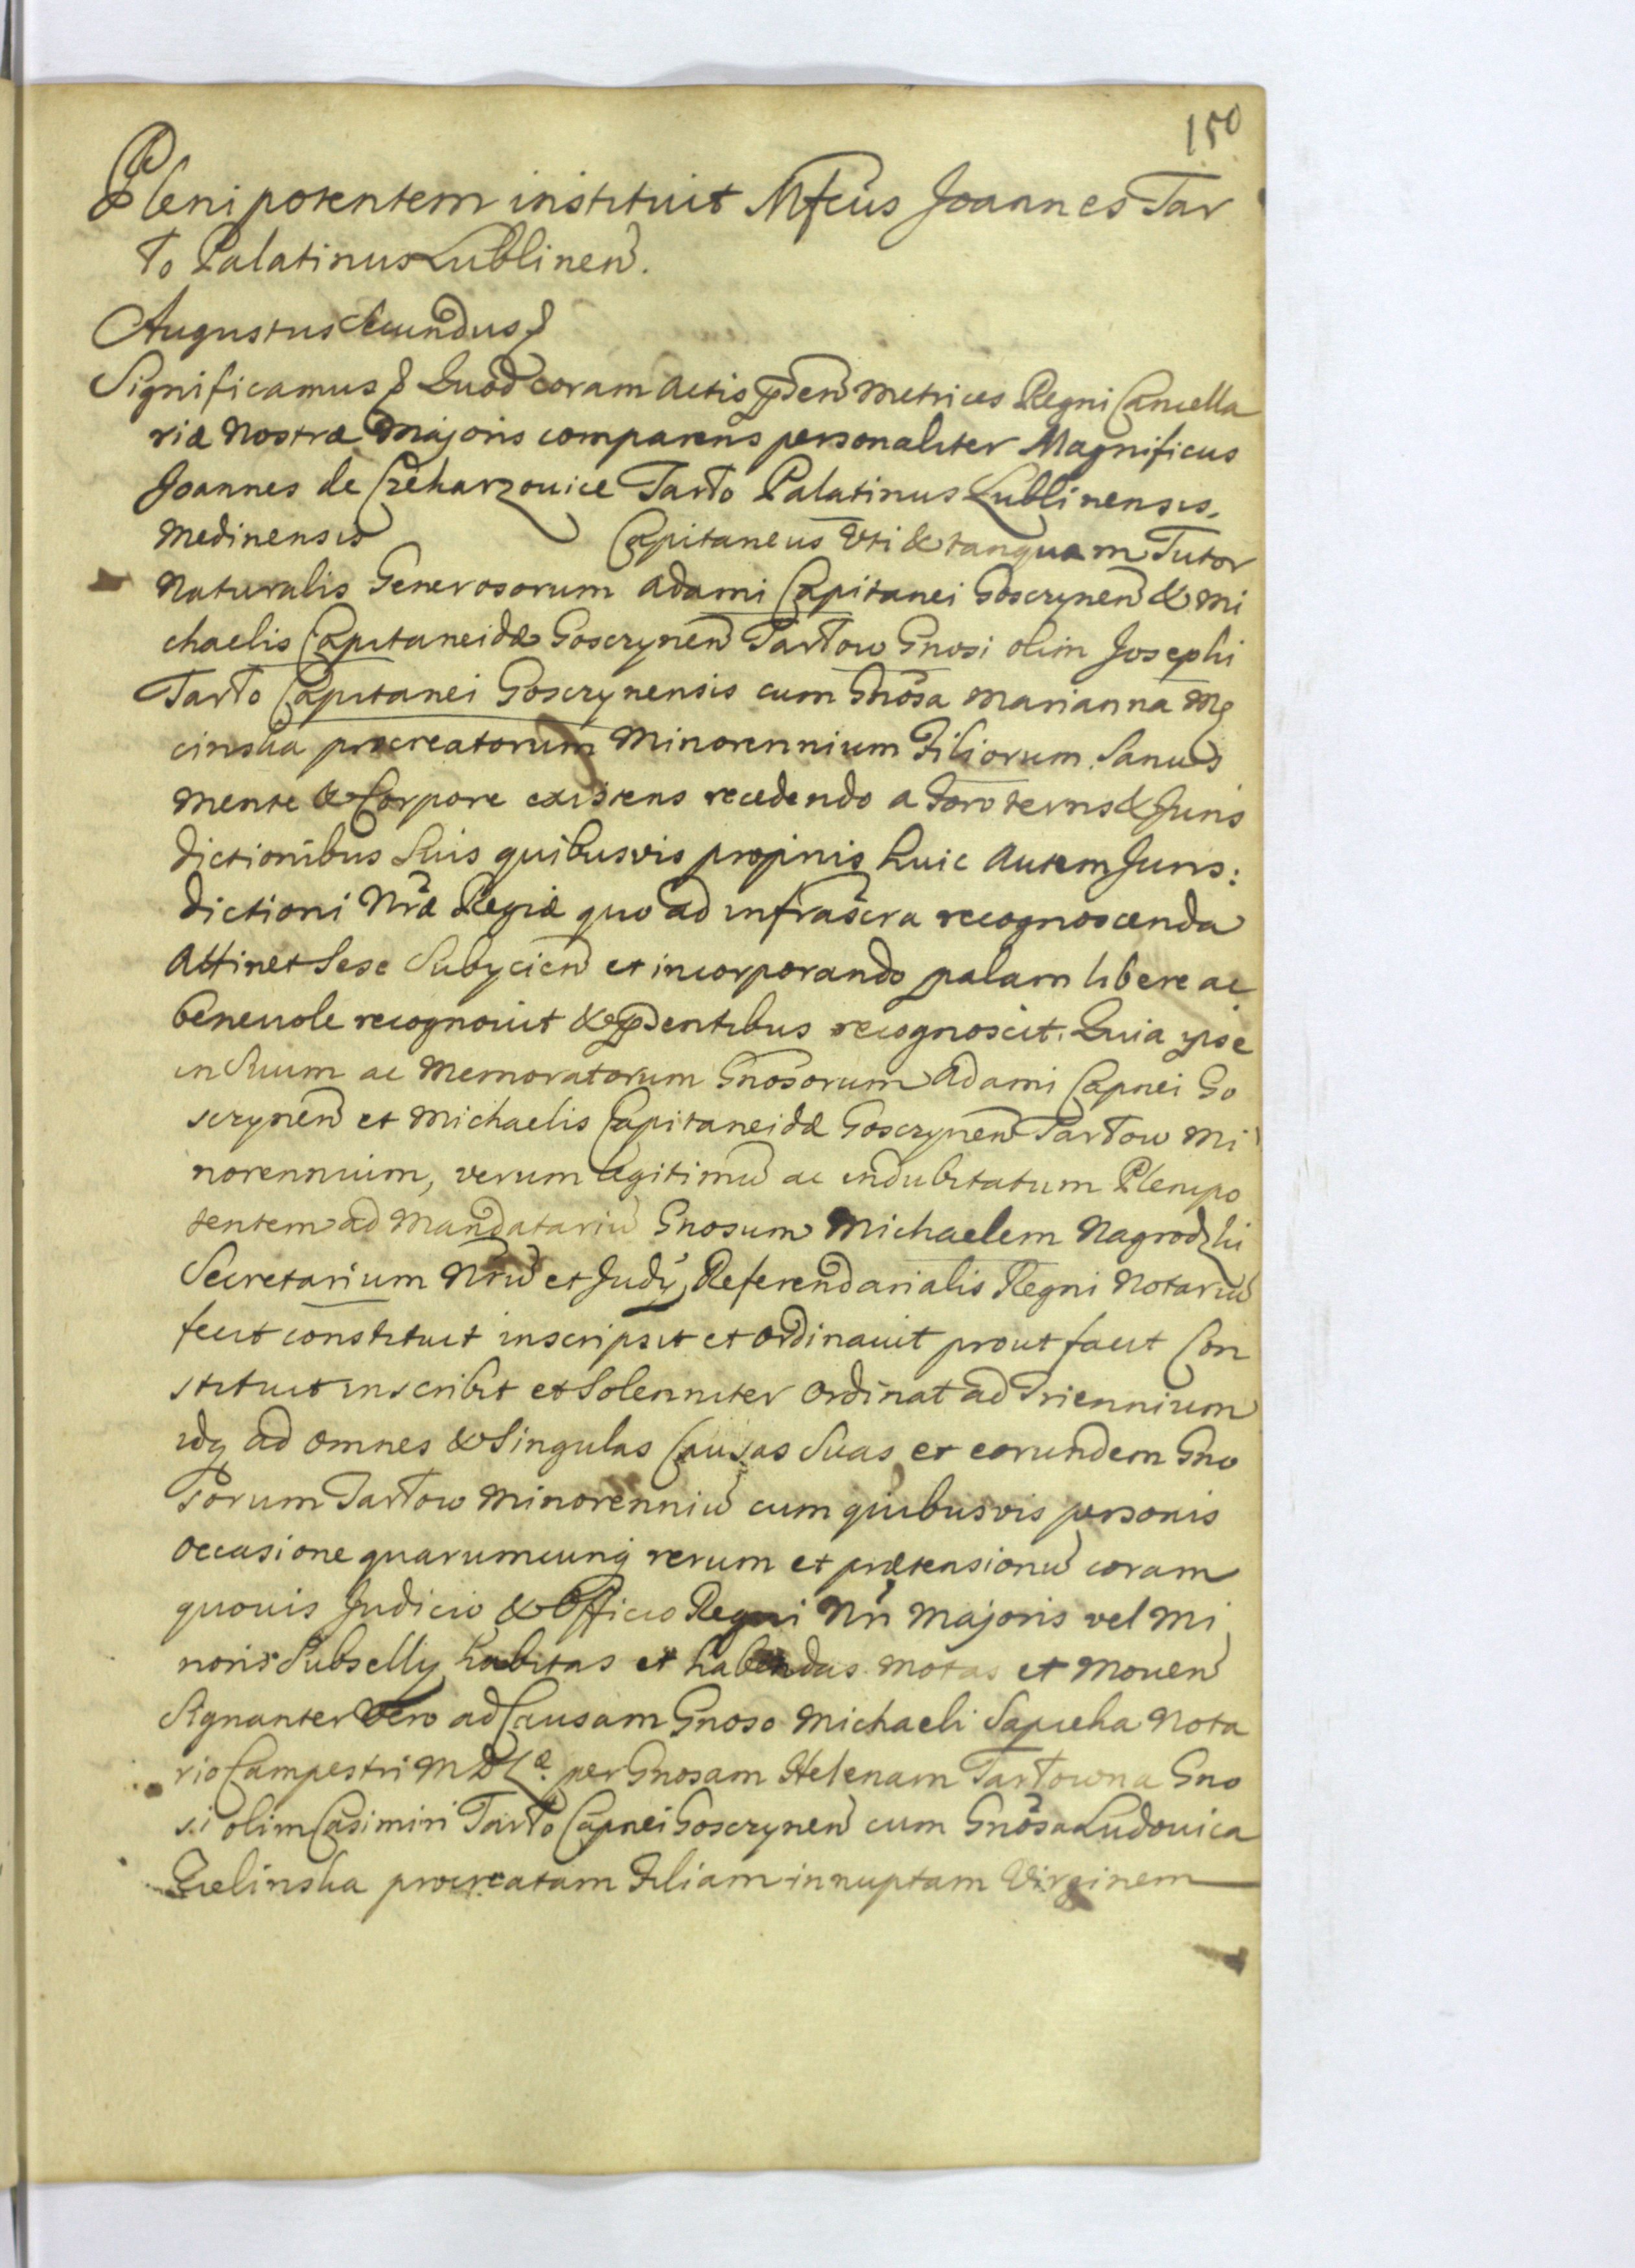 150
Plenipotentem instituit Mfcus Joannes Tar
ło Palatinus Lublinen.
Augustus Secundus &
Significamus & Quod coram Actis pden Metrices Regni Cancella
riæ Nostræ Majoris comparens personaliter Magnificus
Joannes de Czekarzouice Tarło Palatinus Lublinensis,
Medinensis Capitaneus Vti & tanquam Tutor
Naturalis Generosorum Adami Capitanei Goszynen & Mi
chaelis Capitaneidæ Goszynen Tarłow Gnosi olim Josephi
Tarło Capitanei Goszynensis cum Gnosa Marianna Mę
cinska procreatorum Minorennium Filiorum. Sanus
Mente & Corpore existens recedendo a Foro terris & Juris
dictionibus Suis quibusvis proprijs huic Autem Juris:
dictioni Nræ Regiæ quo ad infrascra recognoscenda
Attinet Sese Subycien et incorporando palam libere ac
beneuole recognouit & pdentibus recognoscit. Quia ipse
in Suum ac Memoratorum Gnosorum Adami Capnei Go
szynen et Michaelis Capitaneidæ Goszynen Tarłow Mi
norennium, verum legitimu ac indubitatum Plenipo
tentem ad Mandatariu Gnosum Michaelem Nagrodzki
Secretarium Nru et Judy Referendarialis Regni Notariu
fecit constituit inscripsit et Ordinauit prout facit Con
stituit inscribit et Solenniter Ordinat ad Triennium
idq ad omnes & Singulas Causas Suas et eorundem Gno
sorum Tarłow Minorenniu cum quibusvis personis
Occasione quarumcunq rerum et prætensionu coram
quouis Judicio & Officio Regni Nri Majoris vel Mi
noris Subselly habitas et habendas motas et Mouen
Signanter Vero ad Causam Gnoso Michaeli Sapieha Nota
rio Campestri M D Læ. per Gnosam Helenam Tarłowna Gno
si olim Casimiri Tarło Capnei Goszynen cum Gnosa Ludouica
Zielinska procreatam Filiam innuptam Virginem